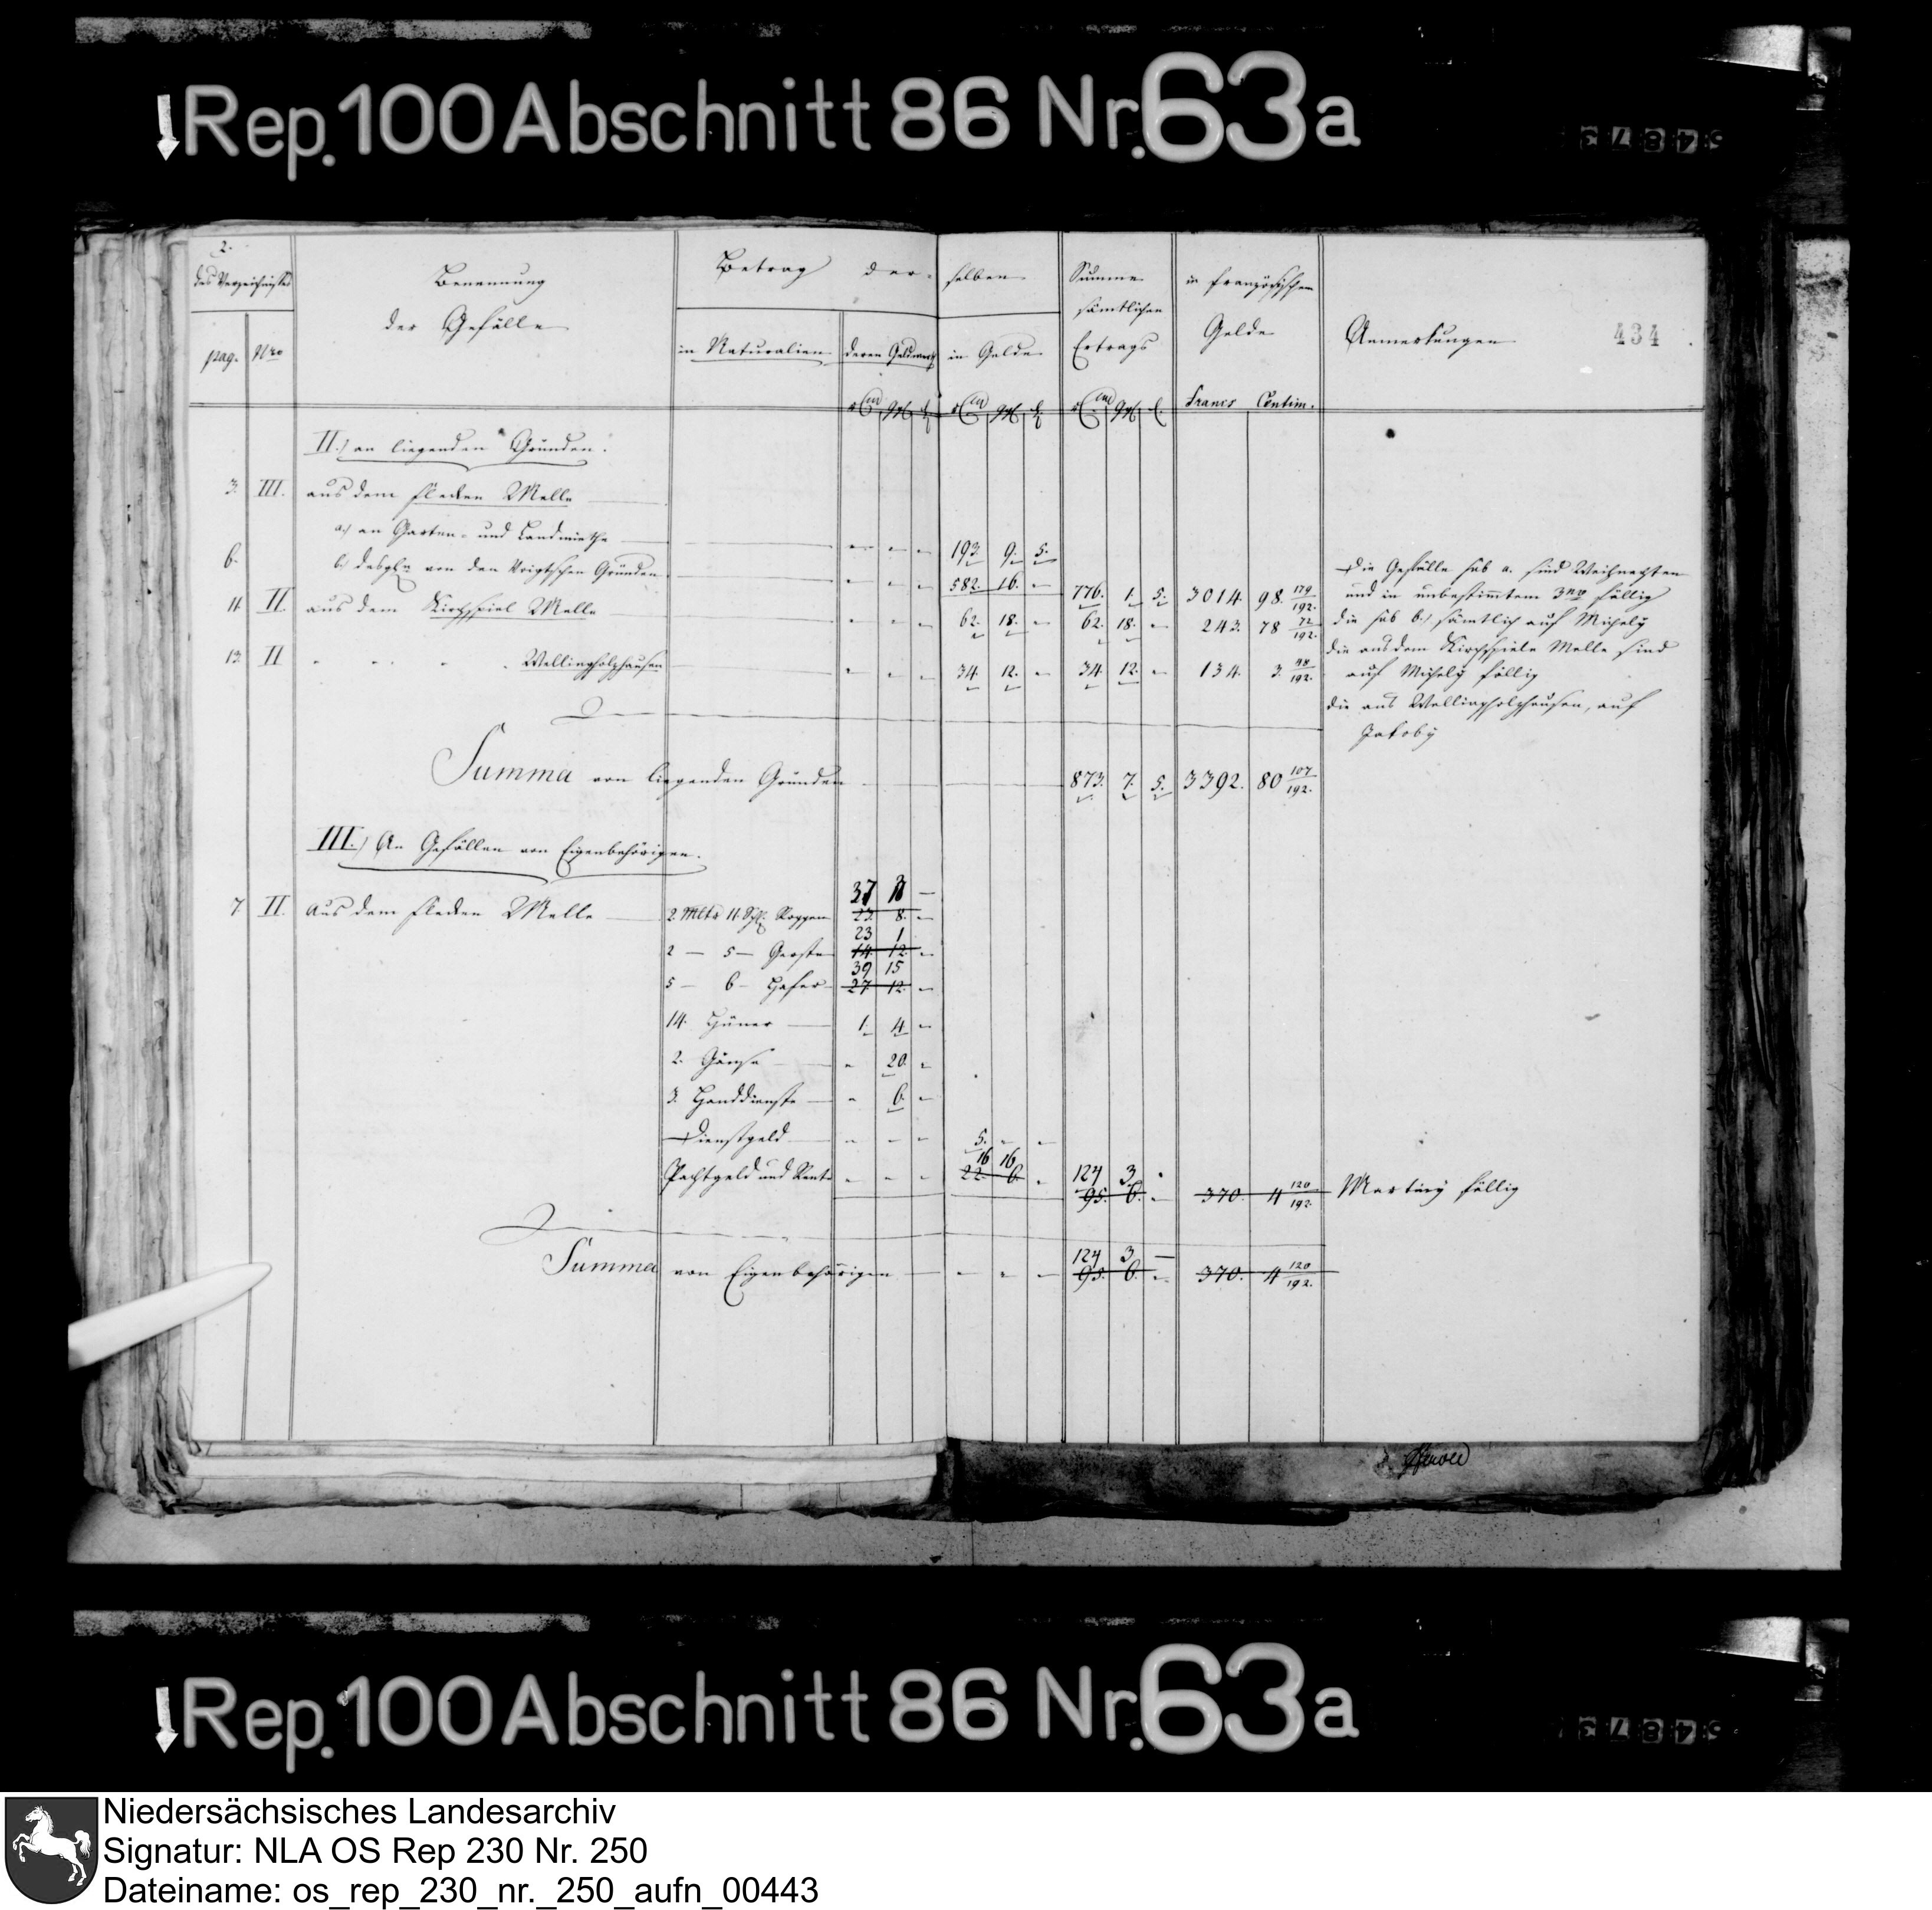 Rep. 100 Abschnitt 86 Nr. 63a
2.
des Verzeichnisses
pag. Nro
Benennung
der Gefälle
Betrag der-selben
in Naturalien
deren Geldwerth
in Gelde
Summe
sämtlichen
Ertrags
in französischem
Gelde
Francs Centim.
Anmerkungen
434
II.) an liegenden Gründen.
3. III. aus dem Flecken Melle
a) an Garten- und Landmiethe 193. 9. 5.
6. b) desgln von den Voigtschen Gründen 582. 16. - 776. 1. 5. 3014. 98. 179/192.
11. II. aus dem Kirchspiel Melle 62. 18. - 62. 18. - 243. 78 72/192.
13. II - - - - Wellingholzhausen 34. 12. - 34. 12. - 134. 3. 48/192.
Die Gefälle sub a. sind Weihnachten
und in unbestimmtem fällig
die sub b.) sämtlich auf Michely
die aus dem Kirchspiele Melle sind
auf Michely fällig
die aus Wellingholzhausen, auf
Jakoby
Summa von liegenden Gründen 873. 7. 5. 3392. 80 107/192.
III.) An Gefällen von Eigenbehörigen.
37 -
7. II. Aus dem Flecken Melle 2. Mltr 11. Schfl. Roggen 23. 8. -
23 1
2 — 5 — Gerste 14. 12. -
39 15
5 — 6 — Hafer 27. 12. -
14. Hüner 1. 4. -
2. Gänse - 20. -
3. Handdienste - 6. -
Dienstgeld - - - 5. - -
16 16
124 3
Pachtgeld und Rente - - - 22. 6. - 95. 6. - 370. 4 120/192. Martiny fällig
124 3 —
Summa von Eigenbehörigen - - - 95. 6. - 370. 4 120/192.
Rep. 100 Abschnitt 86 Nr. 63a
Niedersächsisches Landesarchiv
Signatur: NLA OS Rep 230 Nr. 250
Dateiname: os_rep_230_nr._250_aufn_00443